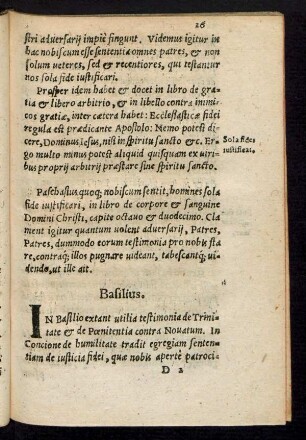 26
stri aduersarij impiè fingunt. Videmus igitur in
hac nobiscum esse sententia omnes patres, & non
solum ueteres, sed & recentiores, qui testantur
nos sola fide iustificari.
Prosper idem habet & docet in libro de gra-
tia & libero arbitrio, & in libello contra inimi-
cos gratiæ, inter cætera habet: Ecclesiasticæ fidei
regula est prædicante Apostolo: Nemo potest di
cere, Dominus Iesus, nisi in spiritu sancto &c. Er-
go multo minus potest aliquid quisquam ex uiri-
bus proprij arbitrij præstare sine spiritu sancto.
Sola fides
iustificat.
Paschasius quoq; nobiscum sentit, homines sola
fide iustificari, in libro de corpore & sanguine
Domini Christi, capite octauo & duodecimo. Cla
ment igitur quantum uolent aduersarij, Patres,
Patres, dummodo eorum testimonia pro nobis sta
re, contraq; illos pugnare uideant, tabescantq; ui-
dendo, ut ille ait.
Basilius.
IN Basilio extant utilia testimonia de Trini-
tate & de Pœnitentia contra Nouatum. In
Concione de humilitate tradit egregiam senten-
tiam de iusticia fidei, quæ nobis apertè patroci-
D 2